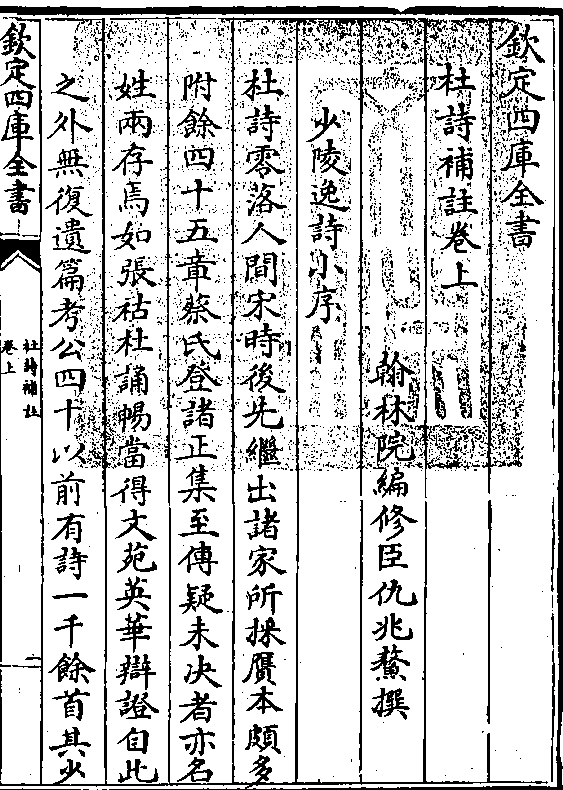 欽定四庫全書
杜詩補註卷上
翰林院編修臣仇兆鰲撰
少陵逸詩小序
杜詩零落人間宋時後先繼出諸家所採贋本頗多
附餘四十五章蔡氏登諸正集至傳疑未決者亦名
姓兩存焉如張祜杜誦暢當得文苑英華辯證自此
之外無復遺篇考公四十以前有詩一千餘首其少
欽定四庫全書
杜詩補註
卷上
一